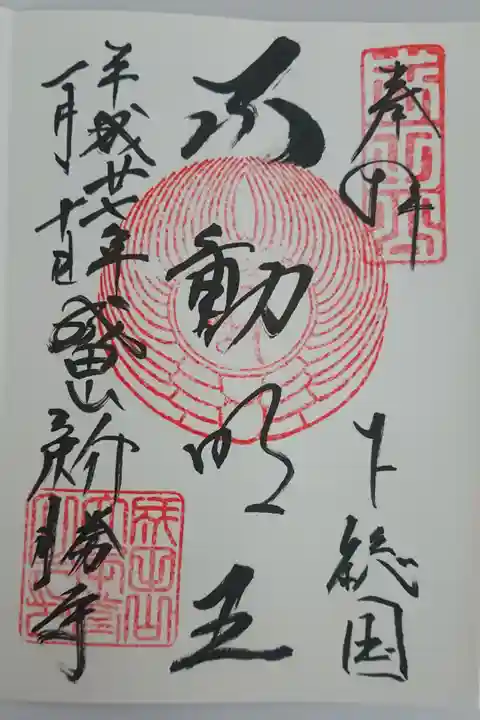 奉拝
下総国
不動明王
平成廿七年 成田山 新勝寺
一月十一日
成田山